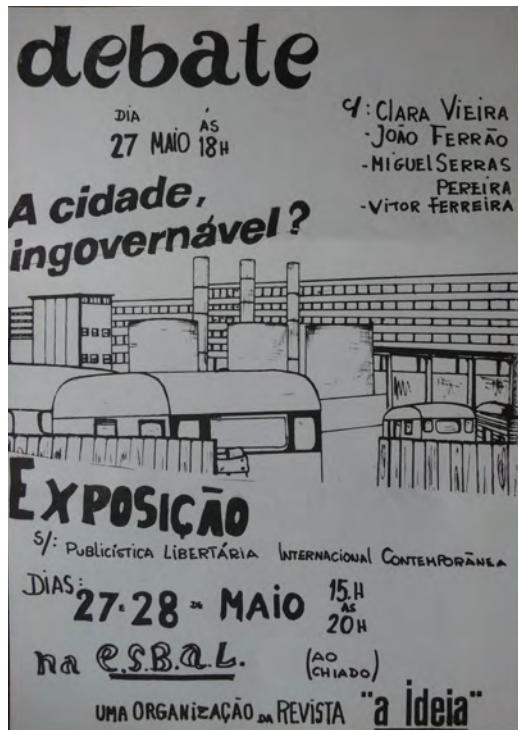 debate
DIA 27 MAIO ÀS 18H
c/: CLARA VIEIRA
- JOÃO FERRÃO
- MIGUEL SERRAS
PEREIRA
- VITOR FERREIRA
A cidade,
ingovernável?
EXPOSIÇÃO
S/: PUBLICÍSTICA LIBERTÁRIA INTERNACIONAL CONTEMPORÂNEA
DIAS: 27 E 28 DE MAIO 15.H ÀS 20H
na E.S.B.A.L. (AO CHIADO)
UMA ORGANIZAÇÃO DA REVISTA "a ideia"